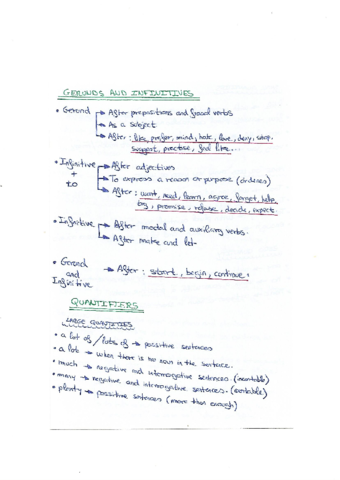 GERUNDS AND INFINITIVES
• Gerund → After prepositions and frasal verbs
→ As a subject
→ After: like, prefer, mind, hate, love, deny, stop,
suggest, practise, feel like...
• Infinitive + to → After adjectives
→ To express a reason or purpose (ordenes)
→ After: want, need, learn, agree, forget, help,
try, promise, refuse, decide, expect.
• Infinitive → After modal and auxiliary verbs.
→ After make and let
• Gerund and Infinitive → After: start, begin, continue.
QUANTIFIERS
LARGE QUANTITIES
• a lot of /lots of → possitive sentences
• a lot → when there is no noun in the sentence.
• much → negative and interrogative sentences. (incontable)
• many → negative and interrogative sentences. (contable)
• plenty → possitive sentences (more than enough)